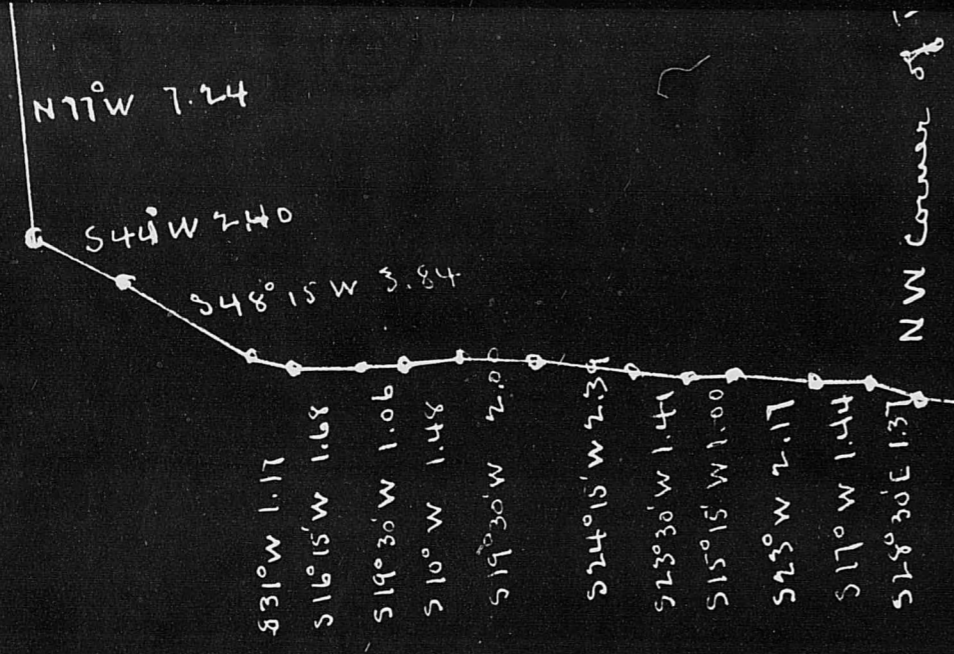 N77°W 7.24
S44°W 2.40
S48°15'W 3.84
S31°W 1.17
S16°15'W 1.68
S19°30'W 1.06
S10°W 1.48
S19°30'W 2.0
S24°15'W 2.39
S23°30'W 1.41
S15°15'W 1.00
S23°W 2.17
S17°W 1.44
S28°30'E 1.37
NW Corner of